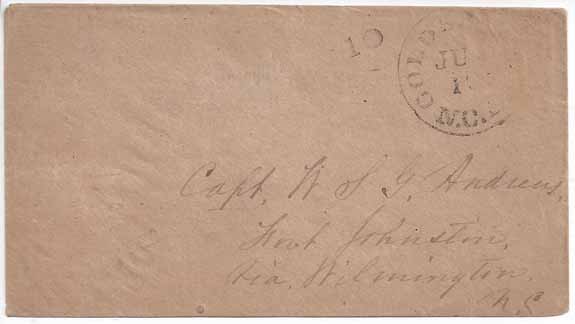 10
GOLD
JU
1
N.C.
Capt. W S G Andrews,
Fort Johnston,
Via, Wilmington.
N.C